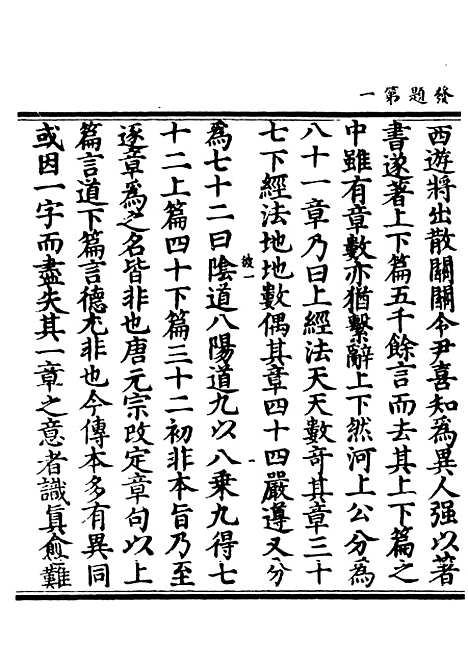 發題第一
西遊將出散關關令尹喜知為異人强以著
書遂著上下篇五千餘言而去其上下篇之
中雖有章數亦猶繫辭上下然河上公分為
八十一章乃曰上經法天天數奇其章三十
七下經法地地數偶其章四十四嚴遵又分
彼一
為七十二曰陰道八陽道九以八乗九得七
十二上篇四十下篇三十二初非本旨乃至
逐章為之名皆非也唐元宗改定章句以上
篇言道下篇言德尤非也今傳本多有異同
或因一字而盡失其一章之意者識眞愈難